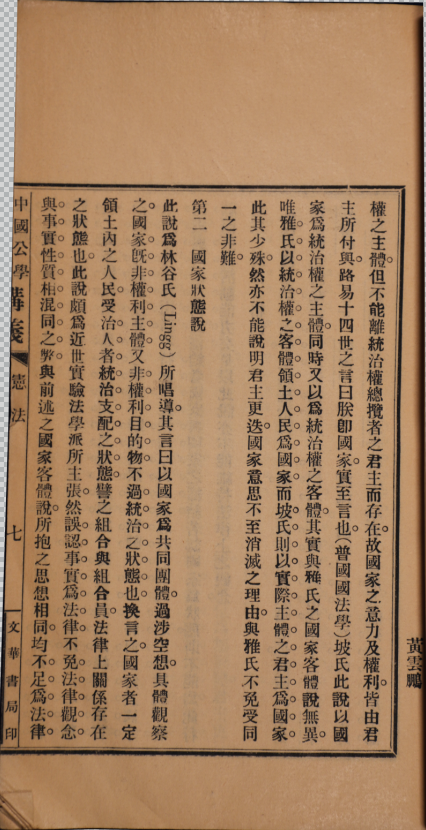 權之主體但不能離統治權總攬者之君主而存在故國家之意力及權利皆由君
主所付與路易十四世之言曰朕卽國家實至言也(普國國法學)坡氏此說以國
家爲統治權之主體同時又以爲統治權之客體其實與雅氏之國家客體說無異
唯雅氏以統治權之客體領土人民爲國家而坡氏則以實際主體之君主爲國家
此其少殊然亦不能說明君主更迭國家意思不至消滅之理由與雅氏不免受同
一之非難
第二 國家狀態說
此說爲林谷氏(Lingg)所唱導其言曰以國家爲共同團體過涉空想具體觀察
之國家旣非權利主體又非權利目的物不過統治之狀態也換言之國家者一定
領土內之人民受治人者統治支配之狀態譬之組合與組合員法律上關係存在
之狀態也此說頗爲近世實驗法學派所主張然誤認事實爲法律不免法律觀念
與事實性質相混同之弊與前述之國家客體說所抱之思想相同均不足爲法律
中國公學講義 憲法 七 文華書局印
黃雲鵬